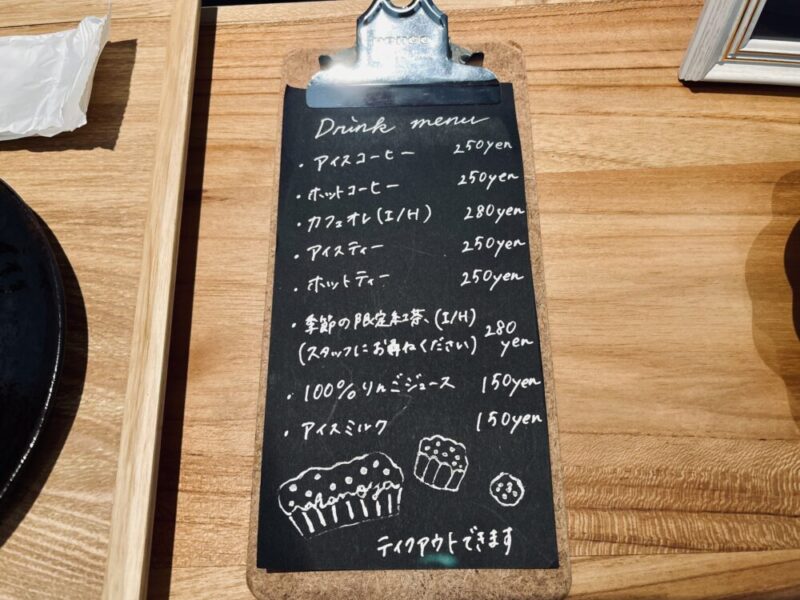 Drink menu
・アイスコーヒー 250yen
・ホットコーヒー 250yen
・カフェオレ(I/H) 280yen
・アイスティー 250yen
・ホットティー 250yen
・季節の限定紅茶、(I/H) 280
(スタッフにお尋ねください) yen
・100%りんごジュース 150yen
・アイスミルク 150yen
ティクアウトできます